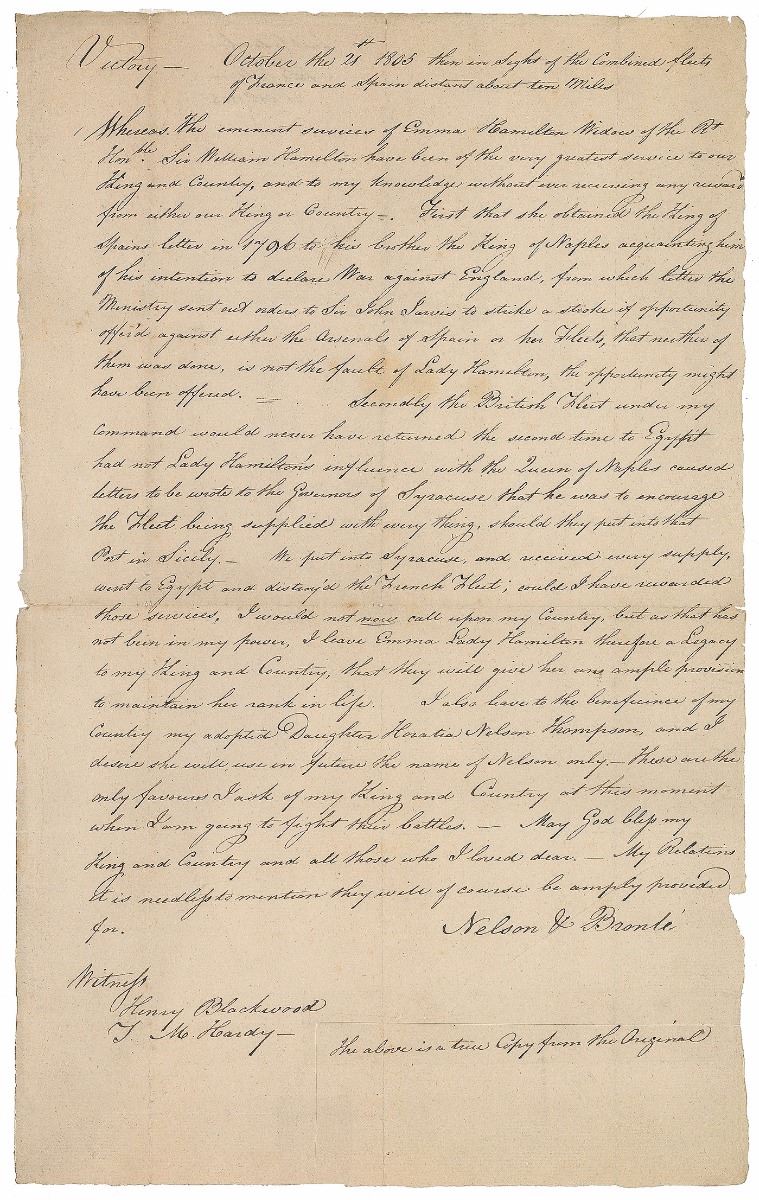 Victory — October the 21st 1805 then in Sight of the Combined fleets
of France and Spain distant about ten Miles
Whereas the eminent services of Emma Hamilton Widow of the Rt
Honble. Sir William Hamilton have been of the very greatest service to our
King and Country, and to my knowledge without ever receiving any reward
from either our King or Country —. First that she obtained the King of
Spains letter in 1796 to his brother the King of Naples acquainting him
of his intention to declare War against England, from which letter the
Ministry sent out orders to Sir John Jarvis to strike a stroke if opportunity
offer'd against either the Arsenals of Spain or her Fleets, that neither of
them was done, is not the fault of Lady Hamilton, the opportunity might
have been offered. — Secondly the British Fleet under my
Command would never have returned the second time to Egypt
had not Lady Hamilton's influence with the Queen of Naples caused
letters to be wrote to the Governors of Syracuse that he was to encourage
the Fleet being supplied with every thing, should they put into that
Port in Sicily. — We put into Syracuse, and received every supply,
went to Egypt and destroy'd the French Fleet; could I have rewarded
those services, I would not now call upon my Country, but as that has
not been in my power, I leave Emma Lady Hamilton therefore a Legacy
to my King and Country, that they will give her an ample provision
to maintain her rank in life. I also leave to the beneficence of my
Country my adopted Daughter Horatia Nelson Thompson, and I
desire she will use in future the name of Nelson only. — These are the
only favours I ask of my King and Country at this moment
when I am going to fight their battles. — May God bless my
King and Country and all those who I loved dear. — My Relations
it is needless to mention they will of course be amply provided
for. Nelson & Bronté
Witness
Henry Blackwood
T. M. Hardy —
The above is a true Copy from the Original